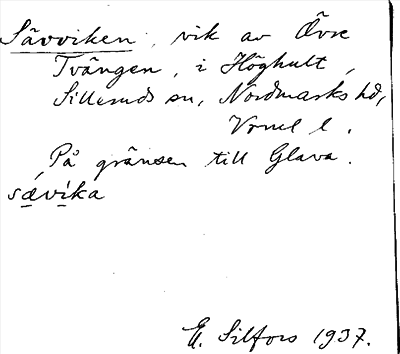 Sävviken, vik av Övre
Tvängen, i Höghult,
Silleruds sn, Nordmarks hd,
Vrml l.
På gränsen till Glava.
sævika
E. Silfors 1937.